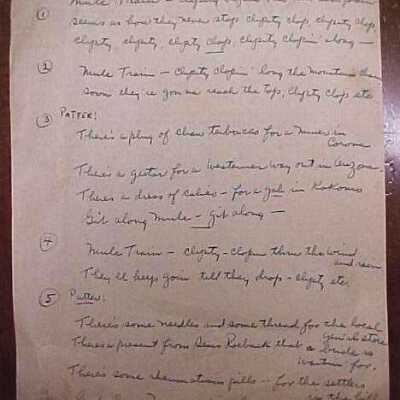 Mule Train – clipity
① seems as how they never stop clipity clop, clipity clop,
clipity, clipity, clipity clop, clipity clopin' along —
② Mule Train – clipity clopin' 'long the mountain
soon they're gonna reach the top, clipity clop etc
③ PATTER:
There's a plug of chaw terbaccer for a Miner in
Corona
There's a geetar for a westerner way out in Arizona,
There's a dress of calico – for a gal in Kokomo
Git along Mule – git along —
④ Mule Train – clipity – clopin thru the wind
and rain
They'll keep goin till they drop – clipity etc.
⑤ Patter:
There's some needles and some thread for the local
store
There's a present from Sears Roebuck that a bride is
waitin' for.
There's some rheumatism pills – for the settlers
in the hills